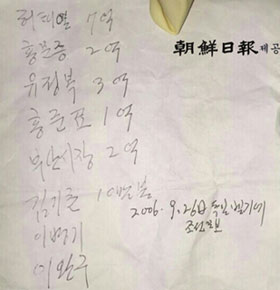 허태열 7억
朝鮮日報 제공
홍문종 2억
유정복 3억
홍준표 1억
부산시장 2억
김기춘 10만불
2006. 9.26日 독일 벨기에
조선일보
이병기
이완구